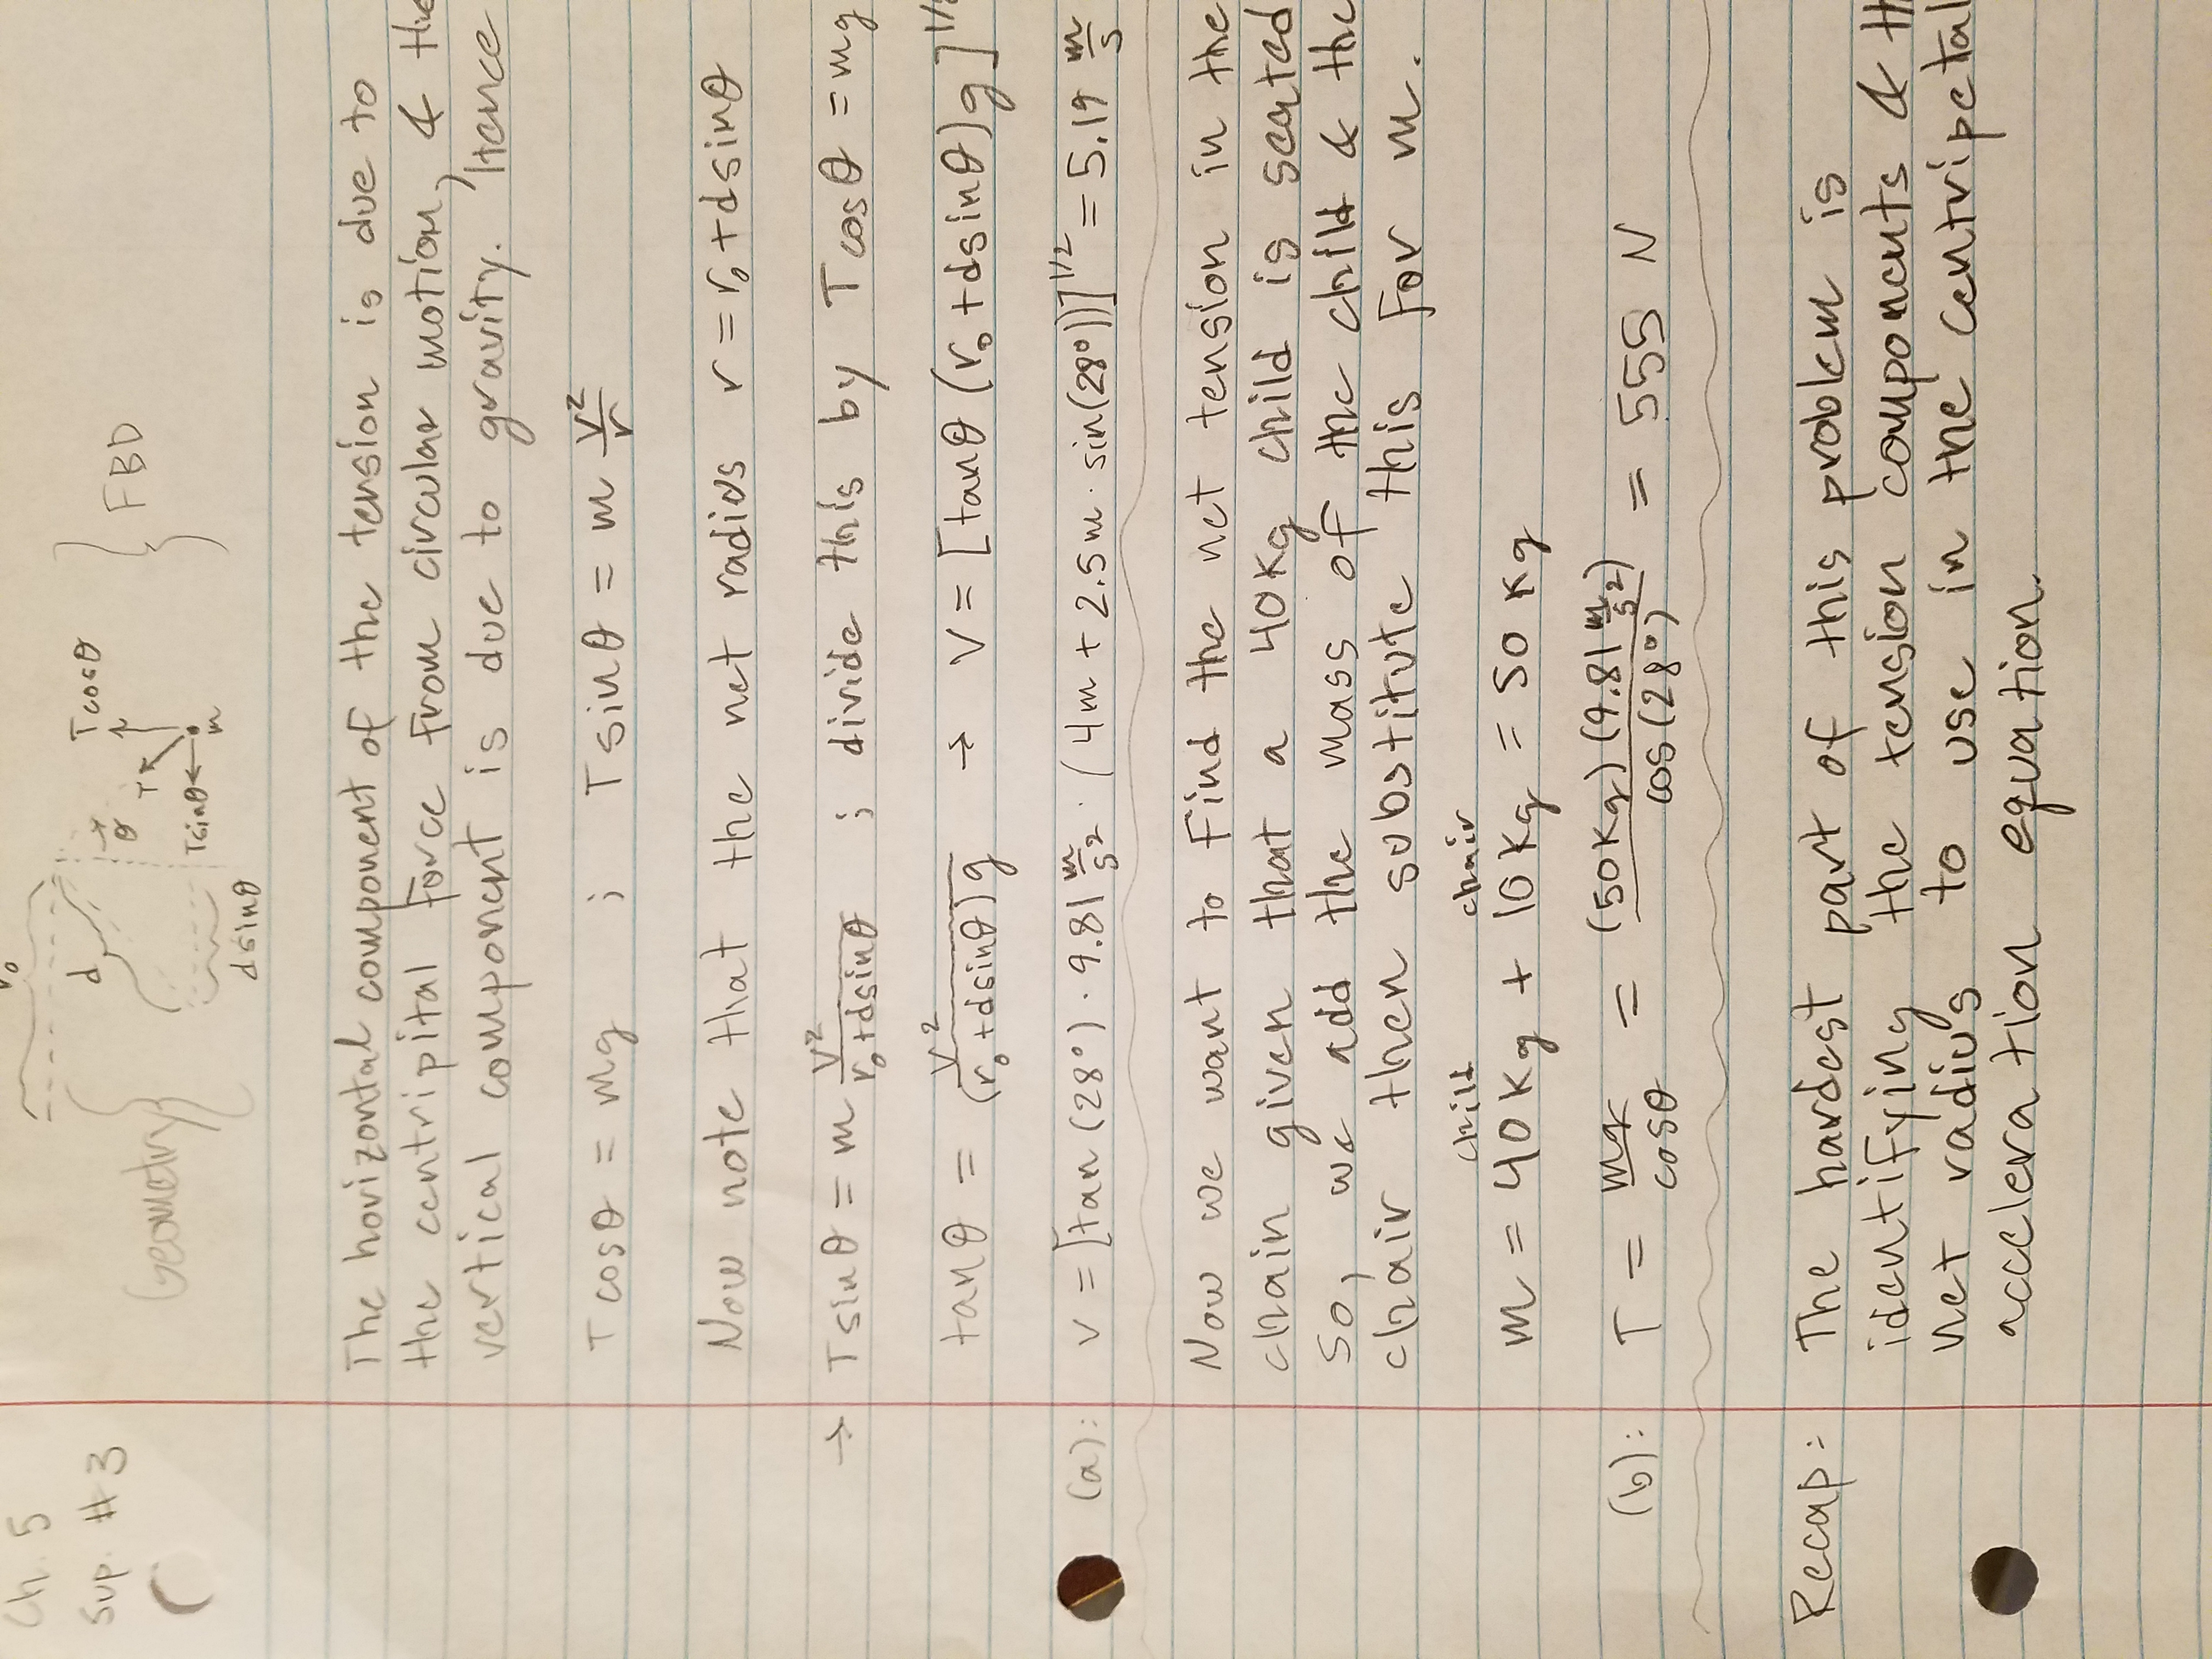 Ch. 5
Sup. #3
r₀
d
θ
Geometry
d sinθ
T cosθ
T
T sinθ
m
FBD
The horizontal component of the tension is due to
the centripital force from circular motion, & the
vertical component is due to gravity. Hence
T cosθ = mg ; T sinθ = m v²/r
Now note that the net radius r = r₀ + d sinθ
→ T sinθ = m v²/(r₀ + d sinθ) ; divide this by T cosθ = mg
tanθ = v²/((r₀ + d sinθ) g) → V = [tanθ (r₀ + d sinθ) g]^1/2
(a): V = [tan (28°) · 9.81 m/s² · (4m + 2.5m · sin(28°))]^1/2 = 5.19 m/s
Now we want to find the net tension in the
chain given that a 40kg child is seated
so, we add the mass of the child & the
chair then substitute this for m.
child chair
m = 40 kg + 10 kg = 50 kg
(b): T = mg/cosθ = (50kg)(9.81 m/s²)/cos(28°) = 555 N
Recap: The hardest part of this problem is
identifying the tension components & th
net radius to use in the centripetal
acceleration equation.